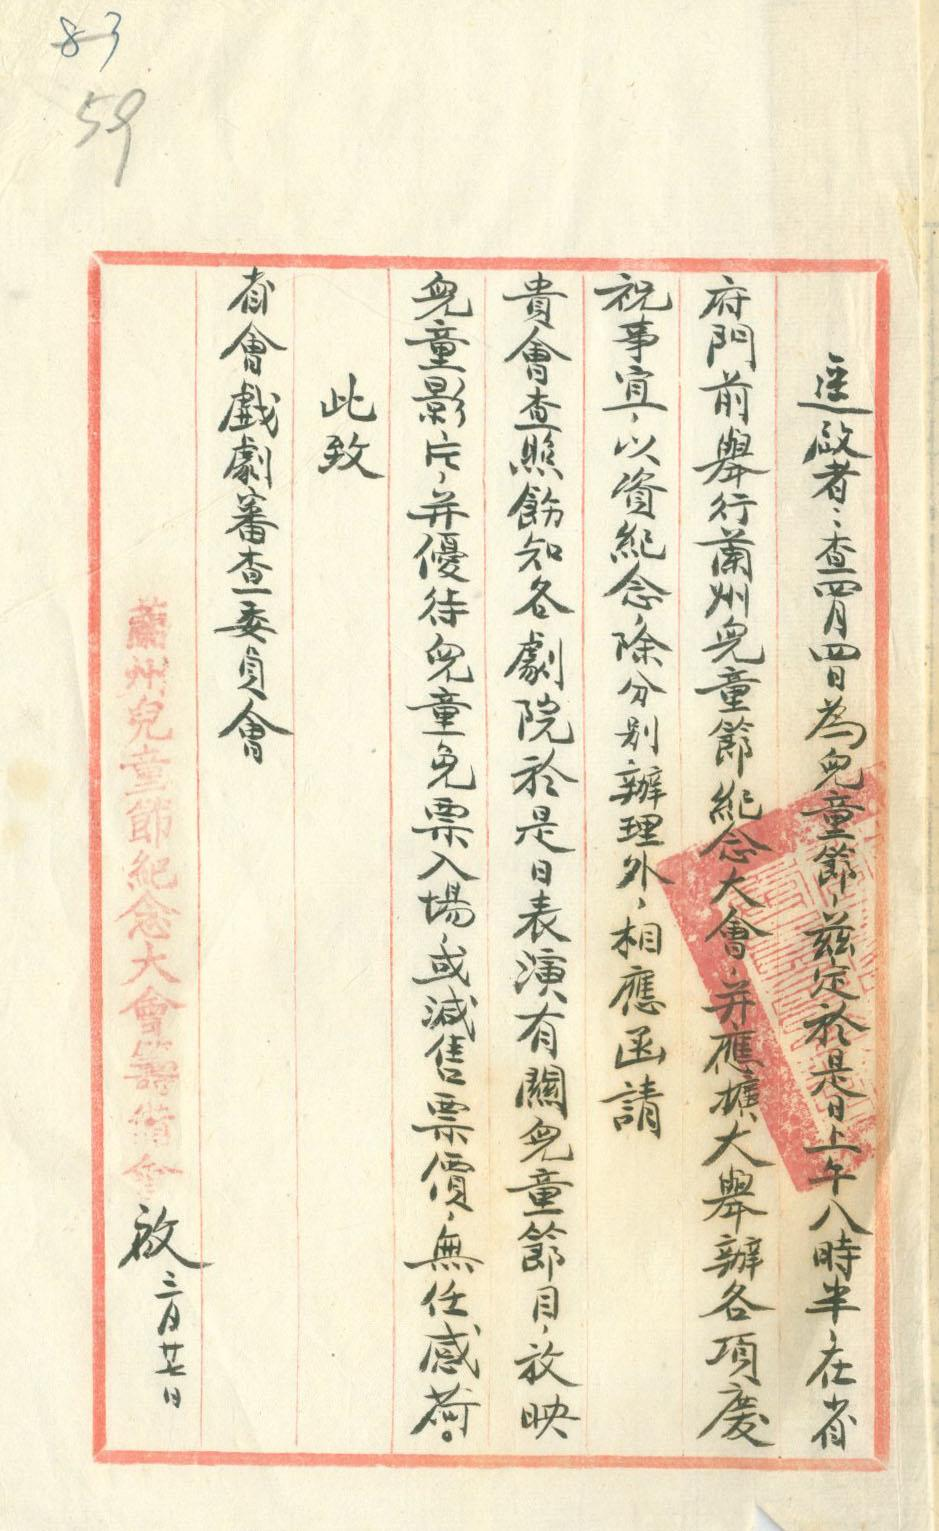 83
59
逕啟者：查四月四日為兒童節，茲定於是日上午八時半，在省
府門前舉行蘭州兒童節紀念大會，并應擴大舉辦各項慶
祝事宜，以資紀念，除分別辦理外，相應函請
貴會查照飭知各劇院於是日表演有關兒童節目，放映
兒童影片，并優待兒童免票入場，或減售票價，無任感荷。
此致
省會戲劇審查委員會
蘭州兒童節紀念大會籌備會啟 三月廿七日